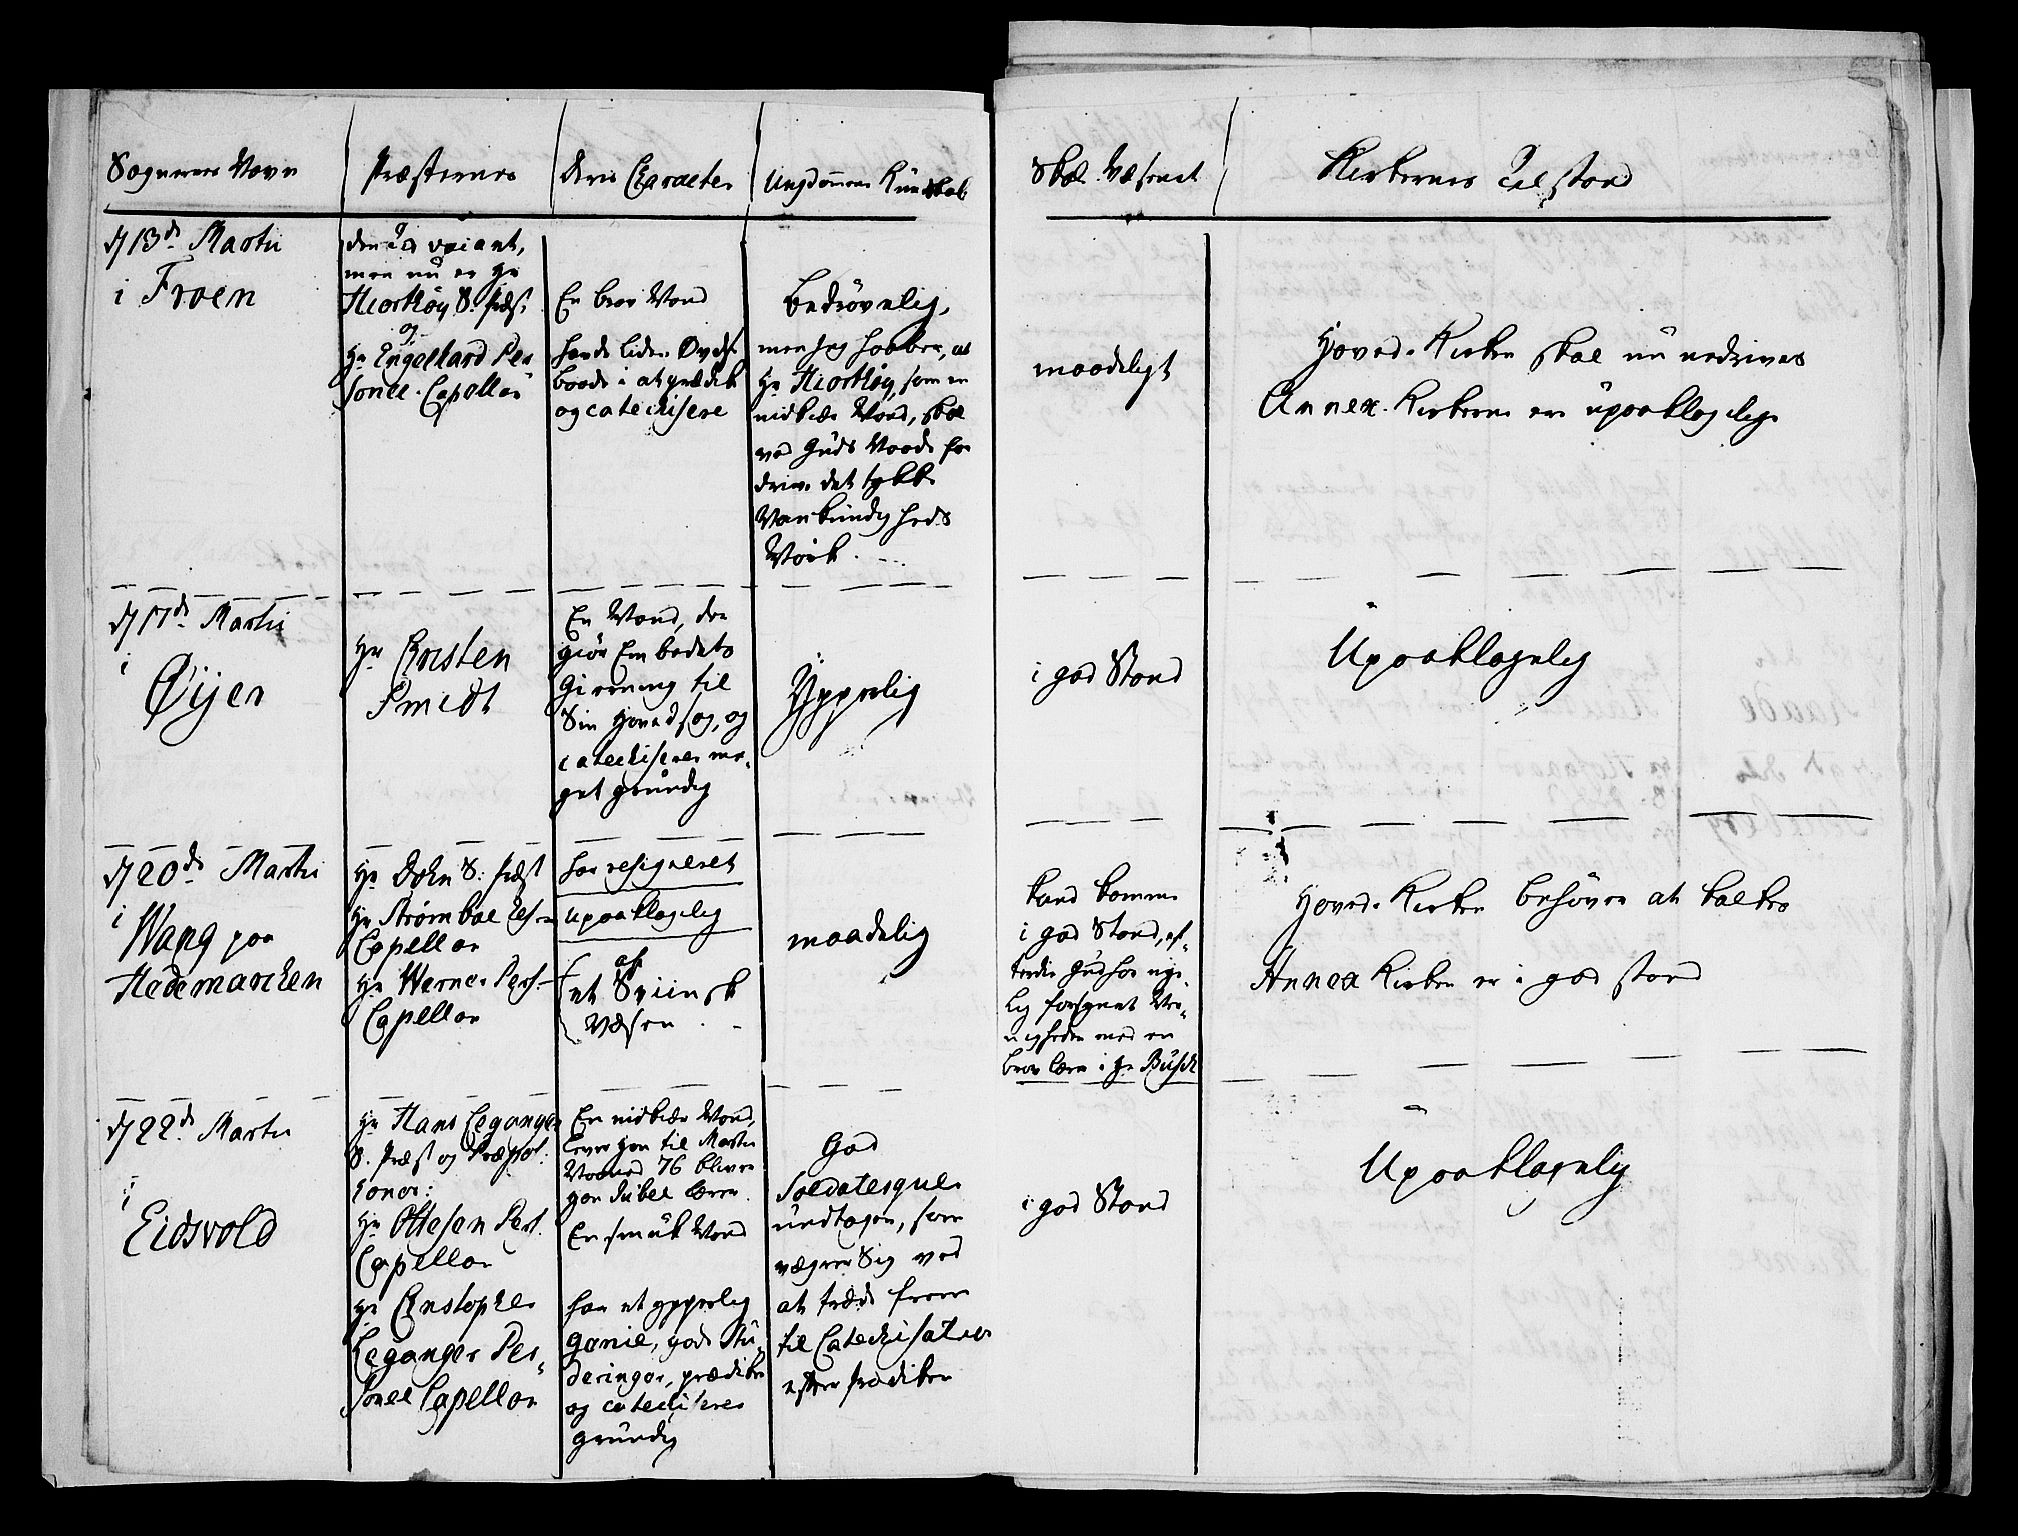 Sognenes Navn
Præsternes
Deris Character
Ungdommens Kundskab
Skole Væsenet
Kirkernes Tilstand
d 13de Martii
i Froen
den Tid vacant,
men nu er Hr
Hiorthøy S. Præst
og
Hr Engelhard Per-
sonel-Capellan
En brav Mand
hands liden Øvelse
baade i at prædike
og catechisere
Bedrøvelig,
men jeg haaber, at
Hr Hiorthøy, som en
nidkier Mand, skal
ved Guds Naade for
drive det tykke
Vankundigheds
Mørk
maadeligt
Hoved-Kirken skal nu nedrives
Annex-Kirkerne ere upaaklagelige
d 17de Martii
i
Øijer
Hr Christen
Smidt
En Mand, der
giør Embedets
Gierning til
Sin Hovedsag, og
catechiserer me-
get grundig
Ypperlig
i god Stand
Upaaklagelig
d 20de Martii
i
Wang paa
Hedemarcken
Hr Dohn S: Præst
Hr Strømboe Pers
Capellan
Hr Werner Pers-
Capellan
har resigneret
upaaklagelig
af
et Sviinsk
Væsen
maadelig
kand komme
i god Stand, ef-
terdi Gud har nye-
lig forsynet Me-
nigheden med en
brav lærer i Hr Busch
Hoved-Kirken behøver at kalkes
Annex Kirken er i god stand
d 22de Martii
i
Eidsvold
Hr Hans Leganger
S. Præst og Præpos:
honor:
Hr Ottesen Pers.
Capellan
Hr Christopher
Leganger Per-
sonel Capellan
En nidkier Mand,
lever Han til Martii
Maaned 76 bliver
han Jubel lærer.
En smuk Mand
har et ypperlig
Genie, gode Stu-
deringer, prædiker
og catechiserer
grundig
God
Soldatesquen
undtagen, som
vægrer Sig ved
at træde frem
til Catechisation
efter prædiken
i god Stand
Upaaklagelig